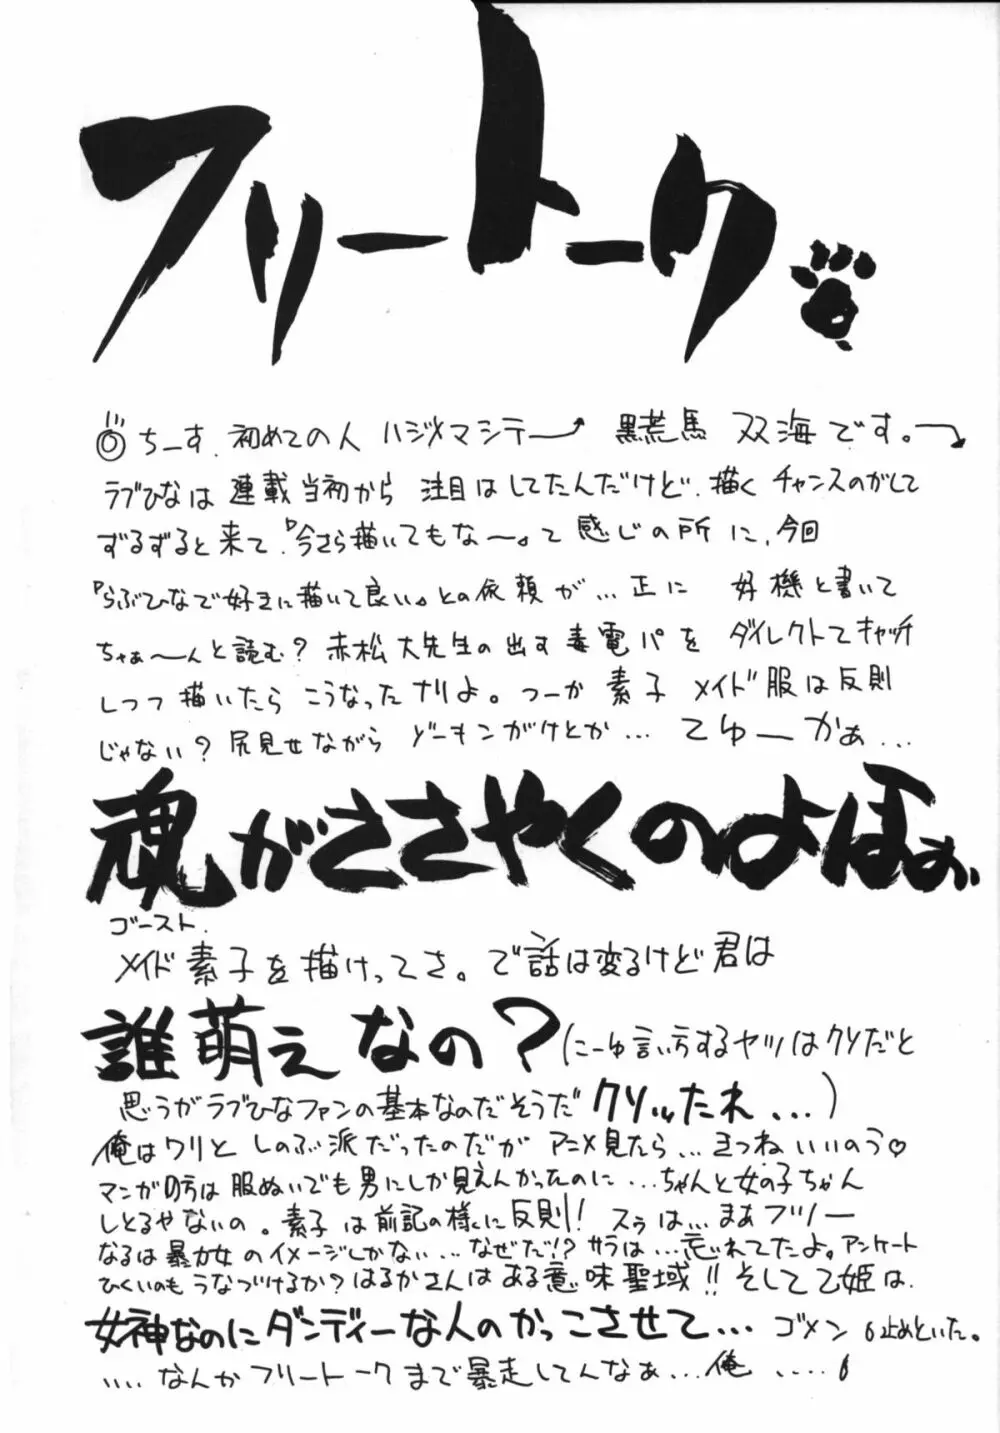 フリートーク
ちーす、初めての人 ハジメマシテー 黒荒馬 双海です。
ラブひなは 連載当初から 注目はしてたんだけど、描く チャンスのがして
ずるずると来て、『今さら描いてもな〜。』って感じの所に、今回
『らぶひなで好きに描いて良い。』との依頼が…正に 好機と書いて
ちゃぁ〜んと読む? 赤松大先生の出す毒電パを ダイレクトでキャッチ
しつつ描いたら こうなったナリよ。つーか 素子 メイド服は反則
じゃない? 尻見せながら ゾーキンがけとか… てゆーかぁ…
魂がささやくのよほぉ、
ゴースト
メイド素子を描けってさ。で話は変るけど君は
誰萌えなの? (にーゆ言い方するヤツはクソだと
思うがラブひなファンの基本なのだそうだ クソッたれ…)
俺はワリと しのぶ派だったのだが アニメ見たら…きつねいいのう♡
マンガの方は服ぬいでも男にしか見えんかったのに…ちゃんと女の子ちゃん
しとるやないの。素子は前記の様に反則! スゥは…まあフツー
なるは暴力女のイメージしかない…なぜだ!? サラは…忘れてたよ。アンケート
ひくいのもうなづけるか? はるかさんはある意味聖域!! そして乙姫は、
女神なのにダンディーな人のかっこさせて… ゴメン 止めといた。
….なんかフリートークまで暴走してんなぁ…俺 ….